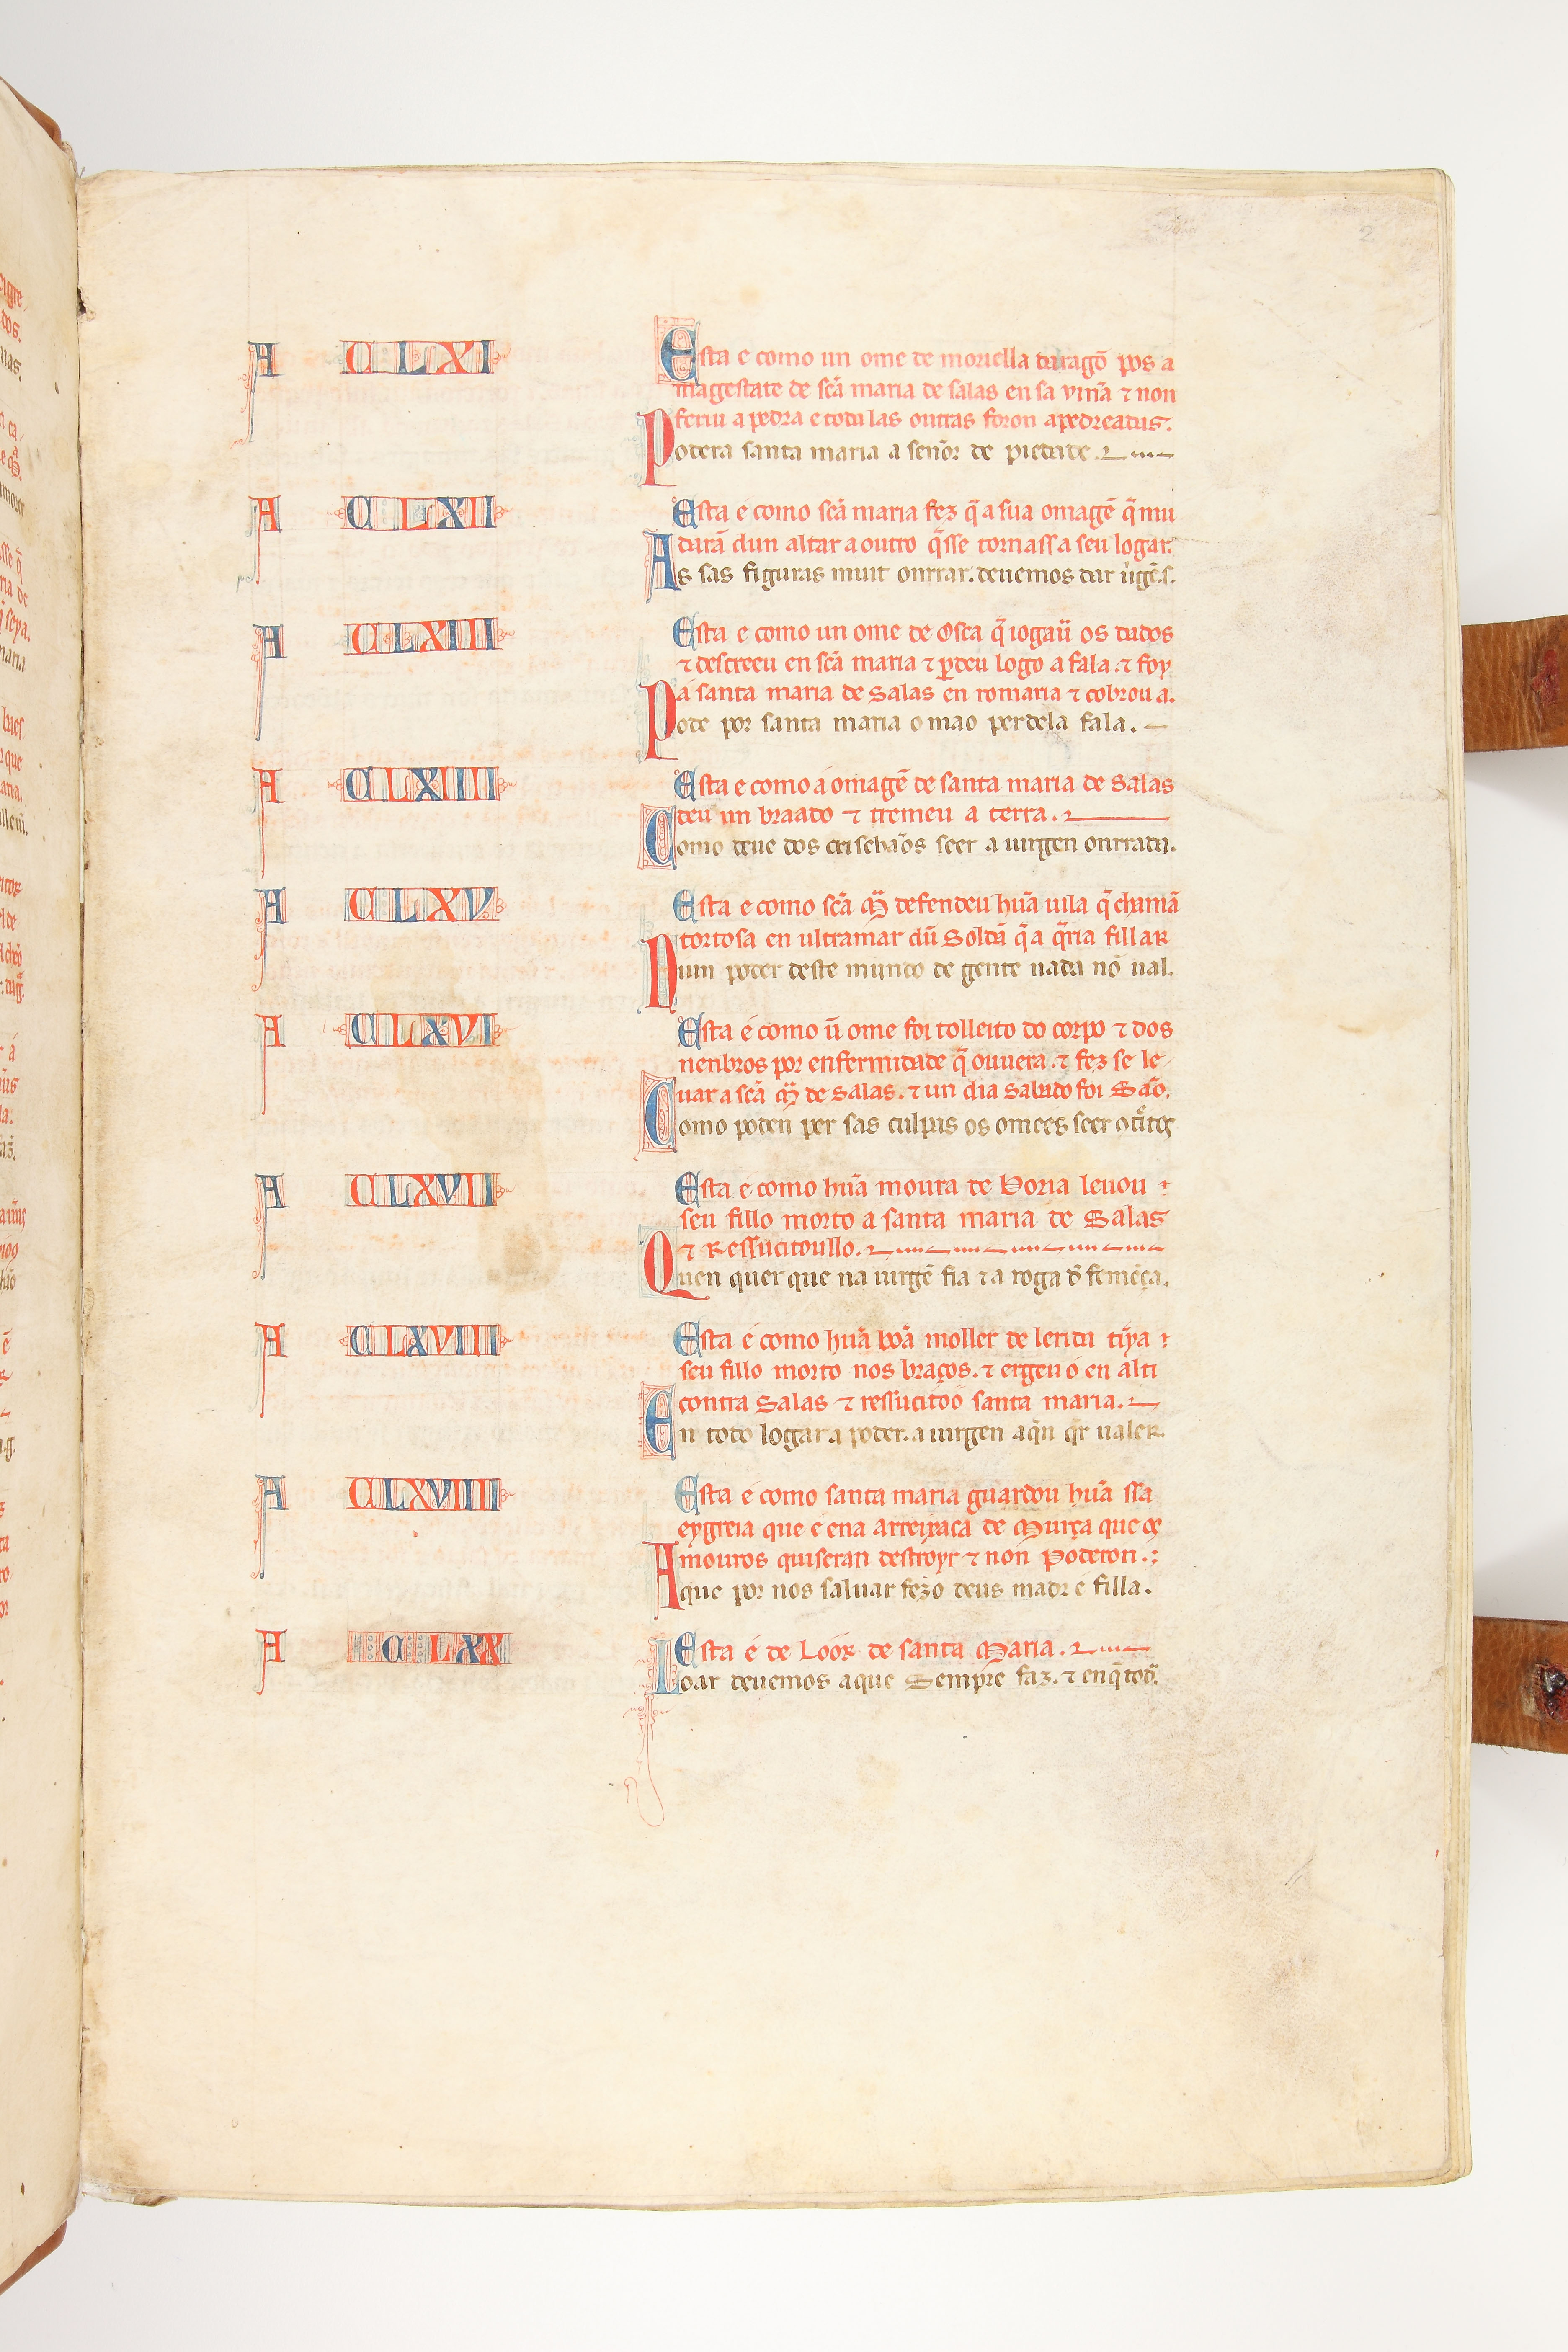 2
A CLXI
Esta e como un ome de moriella daragõ pos a
magestate de scã maria de salas en sa vinã ⁊ non
feriu a pedra e todalas outras foron apedreadas.
Poderá santa maria a seño2 de piedade.
A CLXII
Esta é como scã maria fez q̃ a sua omagẽ q̃ mu
darã dun altar a outro q̃sse tornassa seu logar.
As sas figuras muit onrrar. deuemos dar uigẽ.s.
A CLXIII
Esta e como un ome de Osca q̃ iogaũ os dados
⁊ descreeu en scã maria ⁊ p̱deu logo a fala. ⁊ foy
á santa maria de salas en romaria ⁊ cobrou a.
Pode por santa maria o mao perdela fala.
A CLXIIII
Esta e como á omagẽ de santa maria de Salas
deu un braado ⁊ tremeu a terra.
Como deue dos crischãos seer a uirgen onrrada.
A CLXV
Esta e como scã M̃ defendeu hũa uila q̃ chamã
tortosa en ultramar dũ Soldã q̃ a q̃ria fillar
Nium poder deste mundo de gente nada nõ ual.
A CLXVI
Esta é como ũ ome foi tolleito do corpo ⁊ dos
nenbros por enfermidade q̃ ouuera. ⁊ fez se le
uar a scã M̃ de Salas. ⁊ un dia sabado foi São.
Como poden per sas culpas os omees seer
A CLXVII
Esta e como hũa moura de Boria leuou
seu fillo morto a santa maria de Salas
⁊ Ressucitoullo.
Quen quer que na uirgẽ fia ⁊ a roga d̃ femẽça.
A CLXVIII
Esta é como hũa bõa moller de lerida tiỹa
seu fillo morto nos braços. ⁊ ergeu ó en alti
contra Salas ⁊ ressucitoó santa maria.
En todo logar á poder. a uirgen aq̃n q̃r ualer.
A CLXVIIII
Esta é como santa maria guardou hũa ssa
eygreia que é ena arreixaca de Murça que os
mouros quiseran destroyr ⁊ non Poderon.
A que por nos saluar fezo deus madr e filla.
A CLXX
Esta é de Loor de santa Maria.
Loar deuemos a que Sempre faz. ⁊ enq̃